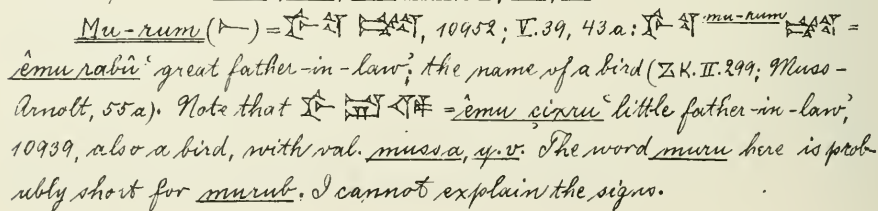 Mu-rum (𒁹) = , 10952; V. 39, 43a: mu-rum =
êmu rabû ‘great father-in-law’; the name of a bird (ZK. II. 299; Muss-
Arnolt, 55a). Note that = êmu cixru ‘little father-in-law’,
10939, also a bird, with val. mussa, q.v. The word muru here is prob-
ably short for murub. I cannot explain the signs.